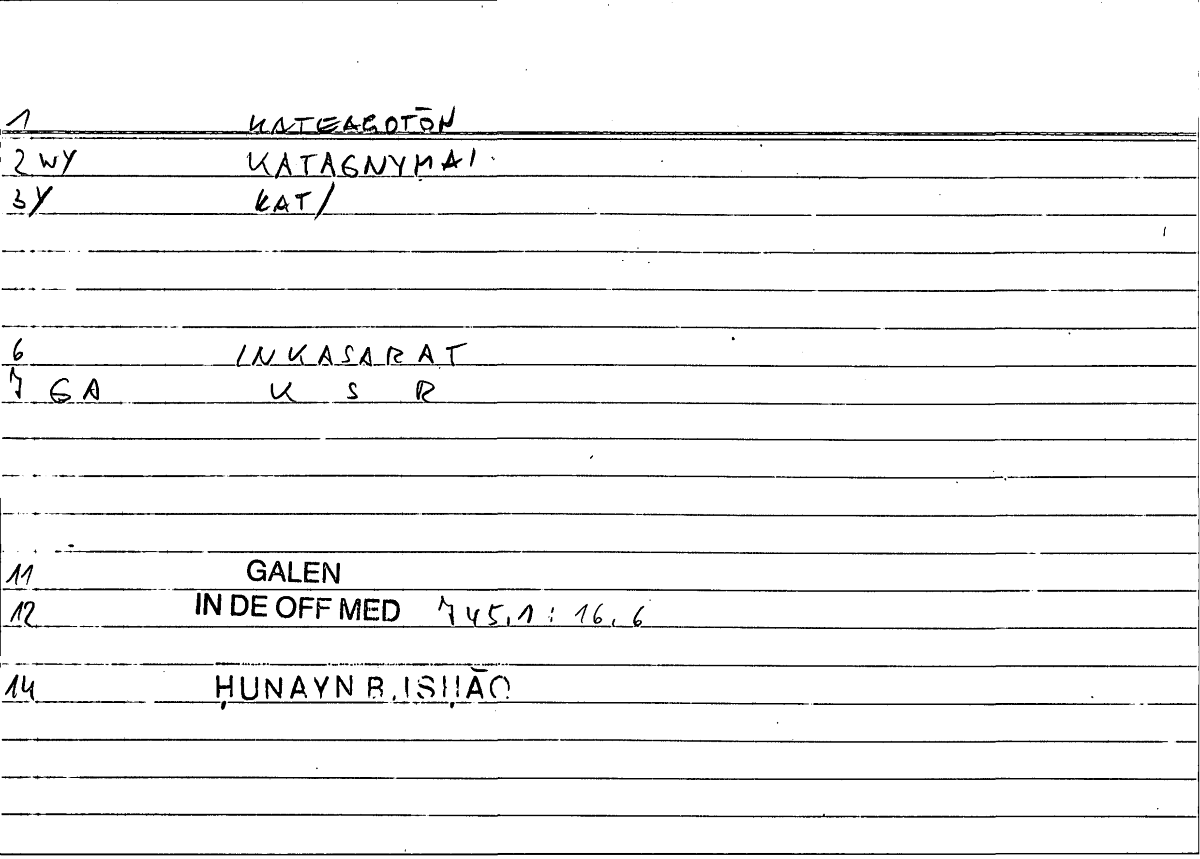 1 KATEAGOTŌN
2 WY KATAGNYMAI
3Y KAT/
6 INKASARAT
7 GA K S R
11 GALEN
12 IN DE OFF MED 745,1 : 16,6
14 ḤUNAYN B. ISḤĀQ